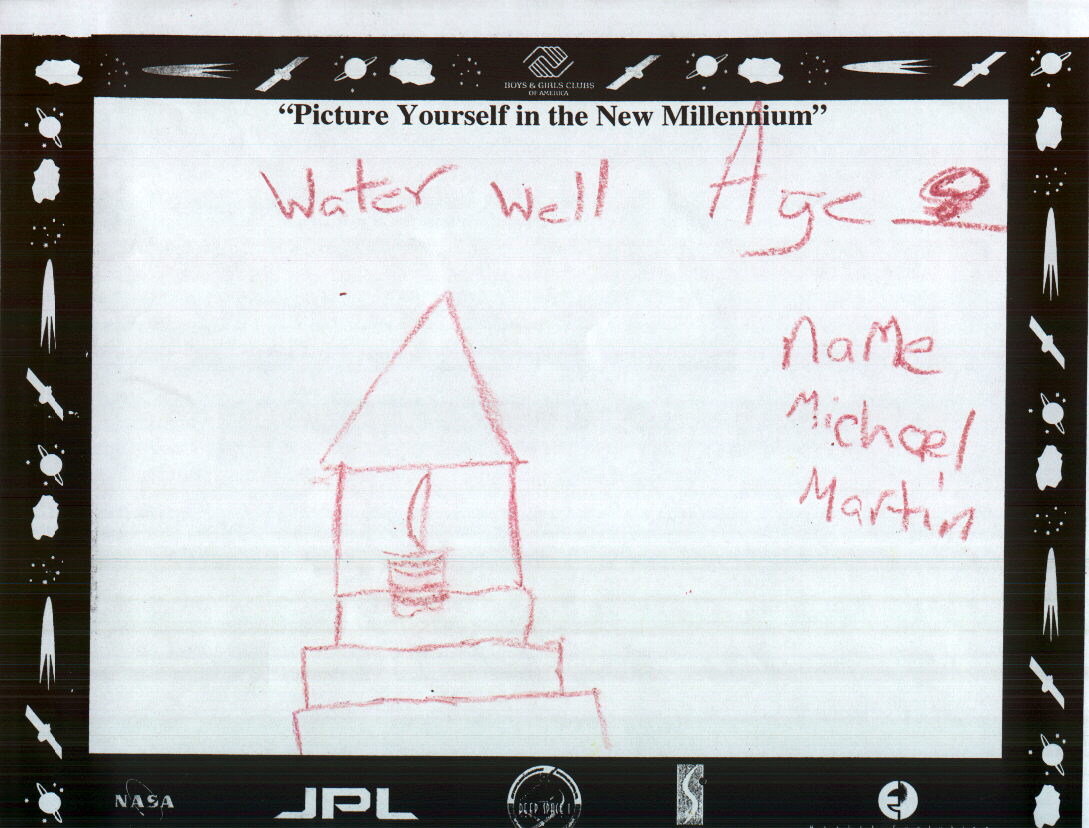 BOYS & GIRLS CLUBS
OF AMERICA
“Picture Yourself in the New Millennium”
Water Well Age
Name
Michael
Martin
NASA JPL DEEP SPACE 1